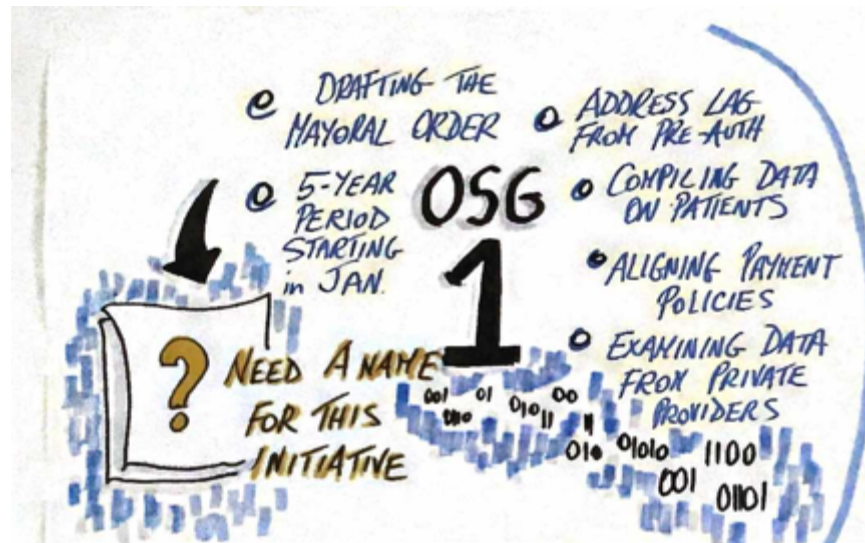 DRAFTING THE
MAYORAL ORDER
5-YEAR
PERIOD
STARTING
in JAN.
OSG
1
ADDRESS LAG
FROM PRE-AUTH
COMPILING DATA
ON PATIENTS
ALIGNING PAYMENT
POLICIES
EXAMINING DATA
FROM PRIVATE
PROVIDERS
?
NEED A NAME
FOR THIS
INITIATIVE
001 01 00
010 01011 11
010 01010 1100
001 01101